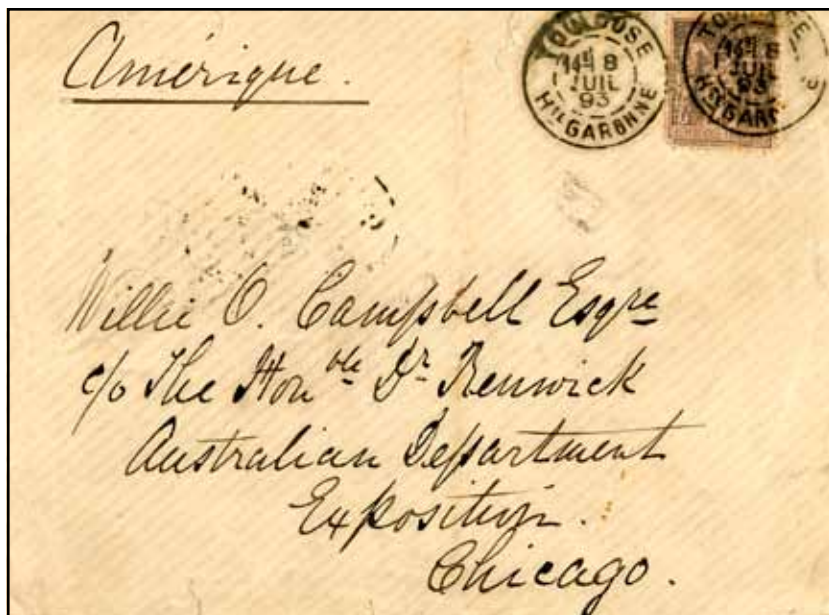 Amérique.
TOULOUSE
1 JUIL
93
Hte GARONNE
8
JUIL
93
Willie O. Campbell Esqre
c/o The Honble Dr Renwick
Australian Department
Exposition.
Chicago.